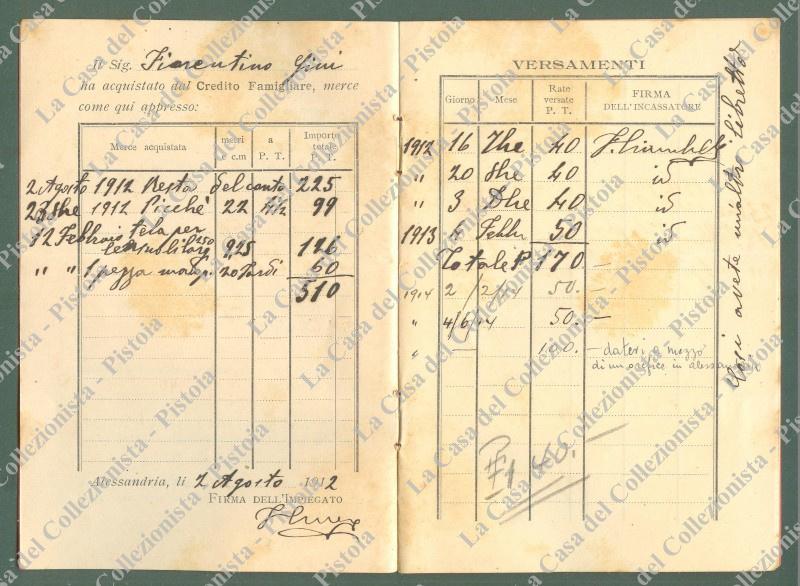 Il Sig. Fiorentino Gini
ha acquistato dal Credito Famigliare, merce
come qui appresso:
Merce acquistata
metri e c.m
a P. T.
Importo totale P. T.
2 Agosto 1912 Resta del conto 225
23 9bre 1912 Picchè 22 4½ 99
12 Febbraio tela per
126
" " 1 pezza 20 60
510
Alessandria, li 2 Agosto 1912
FIRMA DELL'IMPIEGATO
VERSAMENTI
Giorno
Mese
Rate versate P. T.
FIRMA DELL'INCASSATORE
1912 16 7bre 40
" 20 9bre 40 id
" 3 Dbre 40 id
1913 4 Febbr 50 id
Totale P 170 -
1914 2 2/14 50. -
" 4/6 14 50. -
" 100. - datevi a mezzo
di un orefice in alessandria
40. -
Oggi avete un altro libretto
La Casa del Collezionista - Pistoia